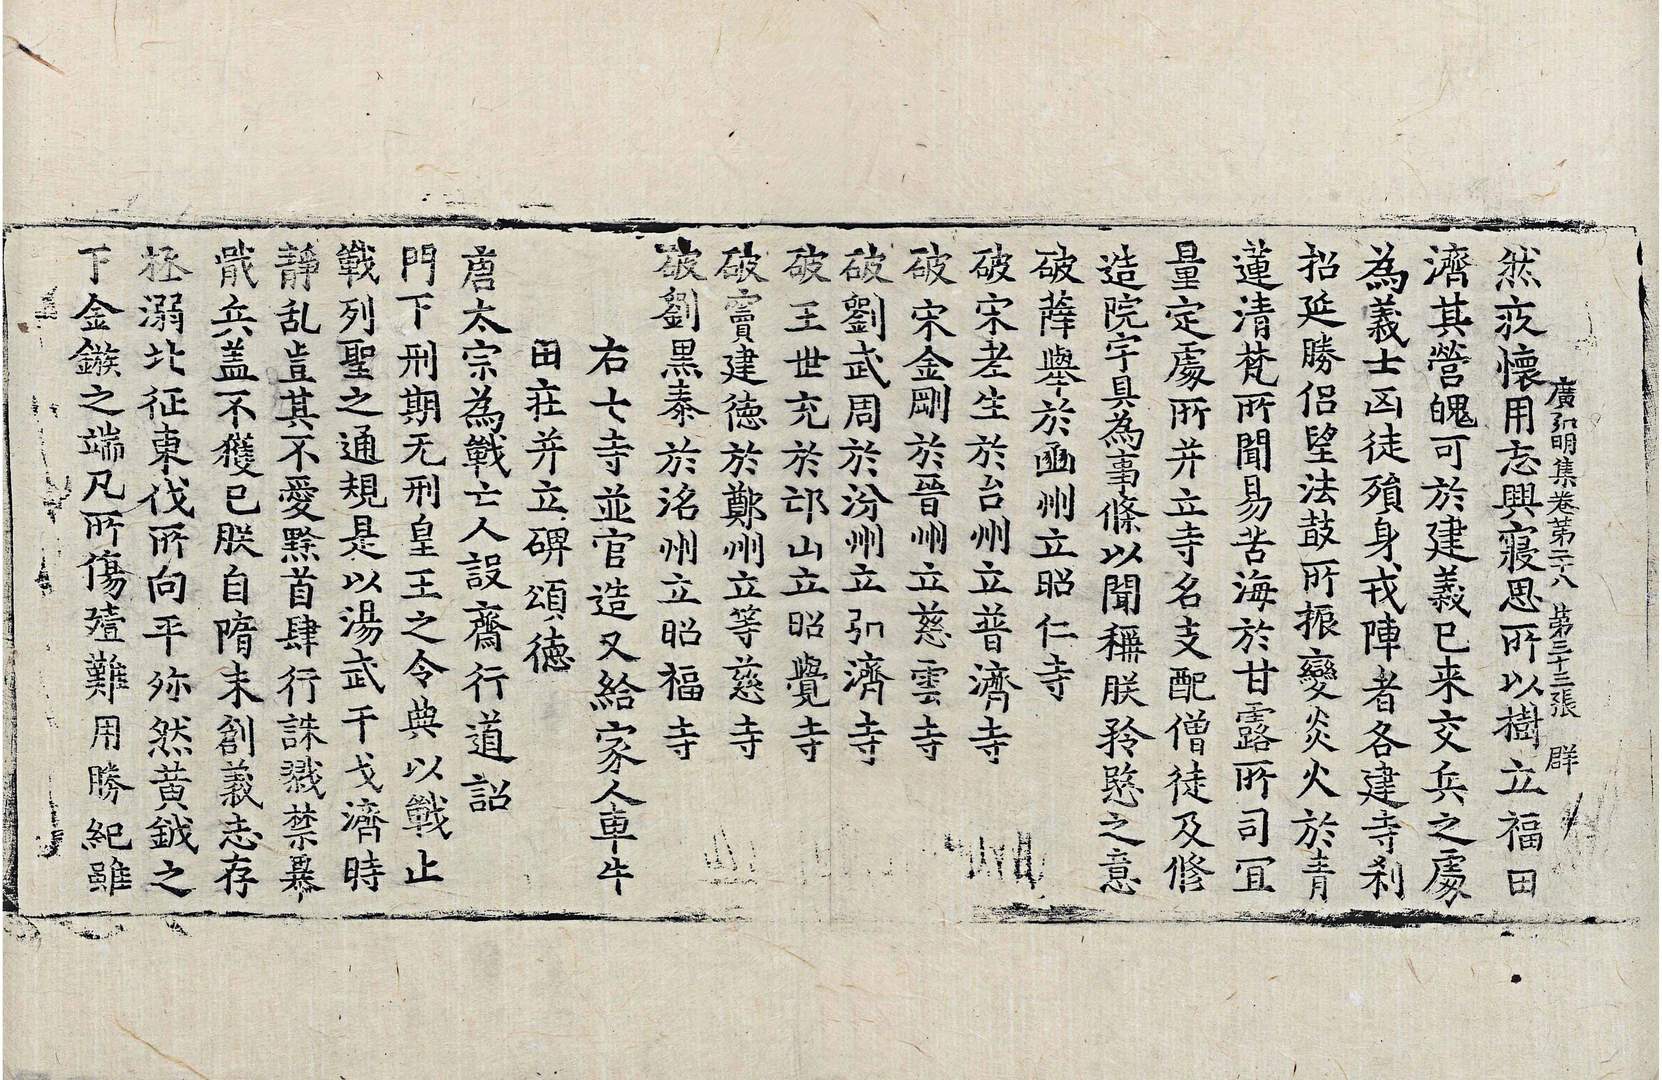 廣弘明集卷第二十八　第三十三張　群
然疚懷用志興寢思所以樹立福田
濟其營魄可於建義已来交兵之處
為義士凶徒殞身戎陣者各建寺刹
招延勝侶望法鼓所振變炎火於青
蓮清梵所聞易苦海於甘露所司宜
量定處所并立寺名支配僧徒及修
造院宇具為事條以聞稱朕矜愍之意
破薛舉於豳州立昭仁寺
破宋老生於台州立普濟寺
破宋金剛於晉州立慈雲寺
破劉武周於汾州立弘濟寺
破王世充於邙山立昭覺寺
破竇建德於鄭州立等慈寺
破劉黒泰於洺州立昭福寺
右七寺並官造又給家人車牛
田莊并立碑頌德
唐太宗為戰亡人設齋行道詔
門下刑期无刑皇王之令典以戰止
戰列聖之通規是以湯武干戈濟時
靜乱豈其不愛黔首肆行誅戮禁暴
戢兵盖不獲已朕自隋末創義志存
拯溺北征東伐所向平殄然黄鉞之
下金鏃之端凡所傷殪難用勝紀雖